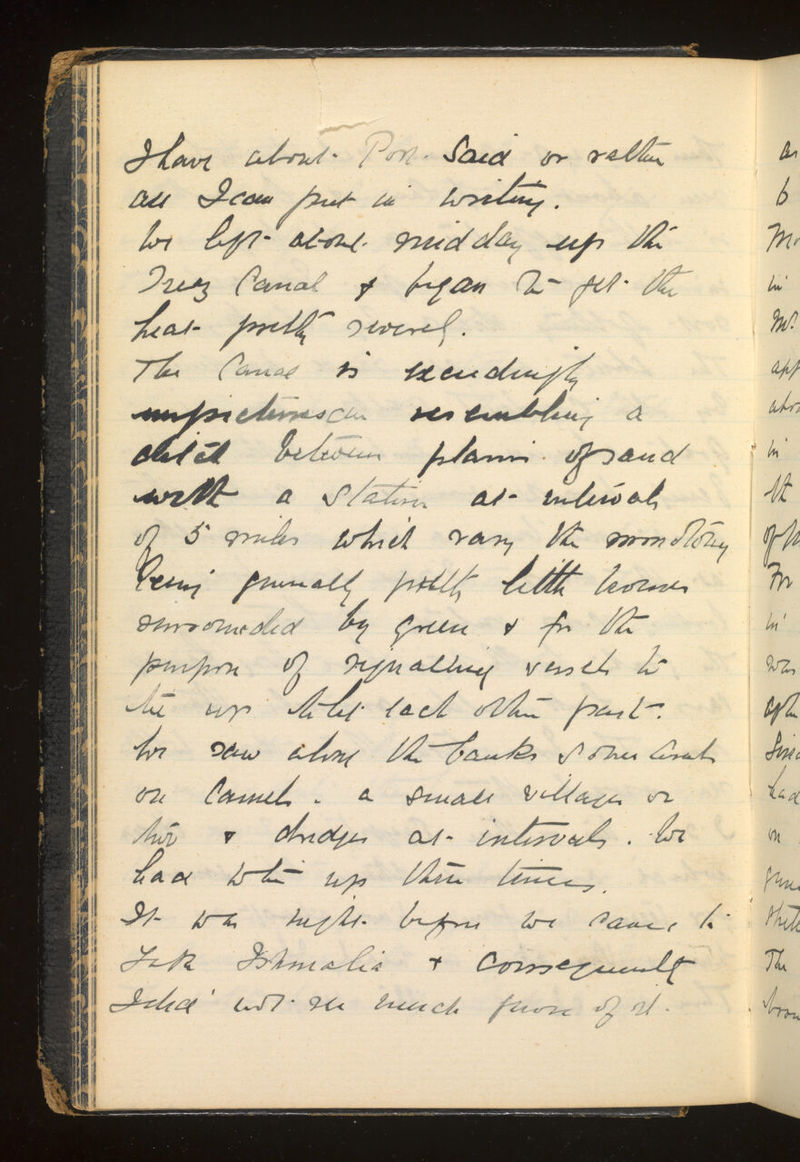 I have about Port Said or rather
all I can put in writing.
We left about midday up the
Suez Canal & began to get the
heat pretty severely.
The Canal is exceedingly
unpicturesque resembling a
ditch between plains of sand
with a station at intervals
of 5 miles which vary the monotony
being generally pretty little houses
surrounded by green & for the
purpose of signalling vessels to
tie up to let each other past.
We saw along the banks some Arabs
on Camels. a small village or
two & dredges at intervals. We
had to tie up three times.
It was night before we came to
Lake Ishmalia & consequently
I did not see much of it.
as
in
Mr
in
in
the
For
in
was
had
on
The